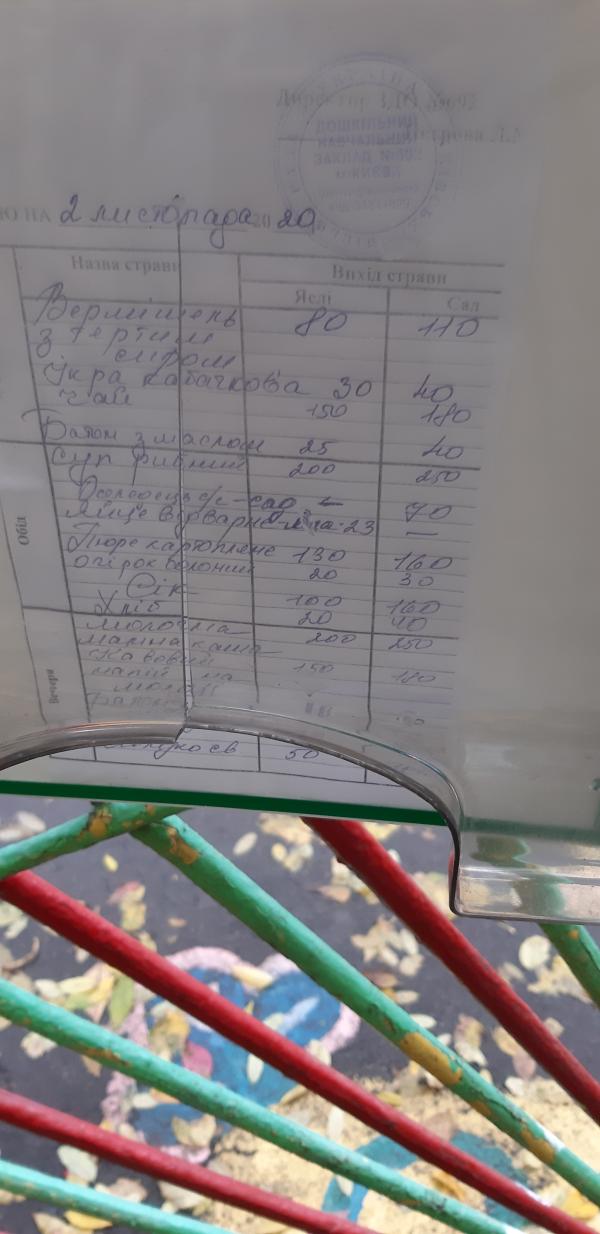 Директор ЗДО
ДОШКІЛЬНИЙ
НАВЧАЛЬНИЙ
ЗАКЛАД
НА 2 листопада 2020
Назва страви Вихід страви
Яслі Сад
Вермішель 80 110
з тертим
сиром
Ікра кабачкова 30 40
Чай 150 180
Батон з маслом 25 40
Обід
Суп рибний 200 250
Оселедець с/с - сад - 70
Яйце варене 23 —
Пюре картопляне 130 160
Огірок солоний 20 30
Сік 100 160
Хліб 20 40
Вечеря
Молочна 200 250
манна каша
Кавовий 150 180
напій на
молоці
Батон
50